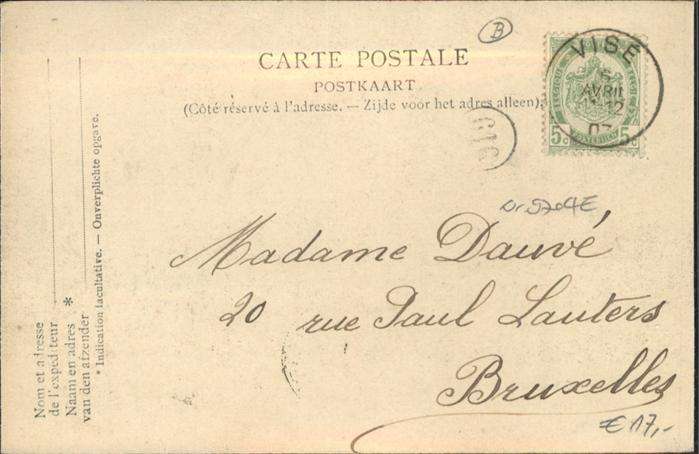 B
CARTE POSTALE
POSTKAART
(Côté réservé à l'adresse. — Zijde voor het adres alleen)
VISÉ
5
AVRIL
11-12
07
5c 5c
616
Madame Dauvé
20 rue Paul Lauters
Bruxelles
€ 17,-
Nom et adresse
de l'expéditeur
Naam en adres *
van den afzender
* Indication facultative. — Onverplichte opgave.